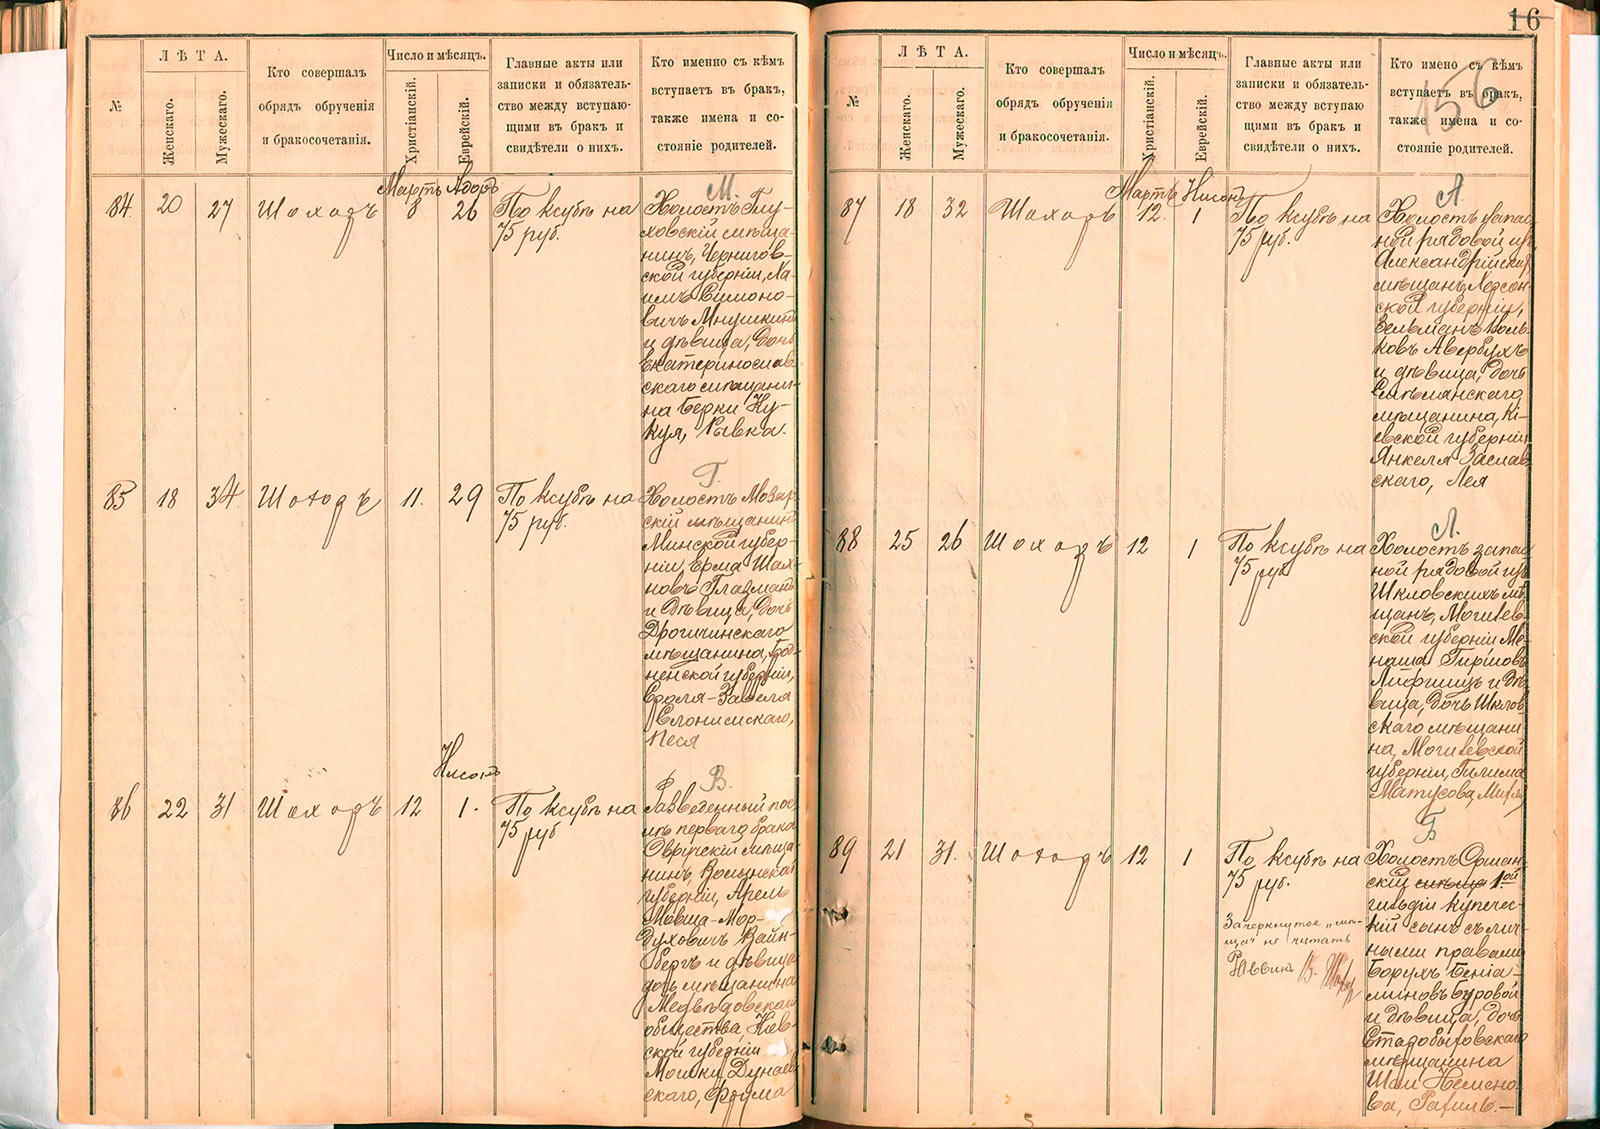 16
156
№
ЛѢТА.
Женскаго.
Мужескаго.
Кто совершалъ
обрядъ обрученія
и бракосочетанія.
Число и мѣсяцъ.
Христіанскій.
Еврейскій.
Главные акты или
записки и обязатель-
ство между вступаю-
щими въ бракъ и
свидѣтели о нихъ.
Кто именно съ кѣмъ
вступаетъ въ бракъ,
также имена и со-
стояніе родителей.
Мартъ Адаръ
М.
84 20 27 Шахоръ 8 26 По ксубѣ на
75 руб.
Холостъ Глу-
ховскій мѣща-
нинъ, Чернигов-
ской губерніи, Ха-
имъ Симоно-
вичъ Мнушкинъ
и дѣвица, дочь
Екатеринослав-
скаго мѣщани-
на Берки Ку-
куя, Ривка.
Г.
85 18 34 Шахоръ 11. 29 По ксубѣ на
75 руб.
Холостъ Мозыр-
скій мѣщанинъ
Минской губер-
ніи, Ерма Шай-
новъ Глазманъ
и дѣвица, дочь
Дрогичинскаго
мѣщанина, Грод-
ненской губерніи,
Сроля-Завеля
Слонимскаго,
Песя
Нисонъ
В.
86 22 31 Шахоръ 12 1. По ксубѣ на
75 руб
Разведенный пос-
лѣ перваго брака
Овручскій мѣща-
нинъ, Волынской
губерніи, Арель
Мовша-Мор-
духовичъ Вайн-
бергъ и дѣвица
дочь мѣщанина
Медвѣдовскаго
общества, Кіев-
ской губерніи
Мошки Дунаев-
скаго, Фрума
№
ЛѢТА.
Женскаго.
Мужескаго.
Кто совершалъ
обрядъ обрученія
и бракосочетанія.
Число и мѣсяцъ.
Христіанскій.
Еврейскій.
Главные акты или
записки и обязатель-
ство между вступаю
щими въ бракъ и
свидѣтели о нихъ.
Кто имено съ кѣмъ
вступаетъ въ бракъ,
также имена и со-
стояніе родителей.
Мартъ Нисонъ
А.
87 18 32 Шахоръ 12. 1 По ксубѣ на
75 руб.
Холостъ запас
ной рядовой изъ
Александрійскихъ
мѣщанъ, Херсон-
ской губерніи,
Зельманъ Воль-
ковъ Авербухъ
и дѣвица, дочь
Смѣлянскаго
мѣщанина, Кі-
евской губерніи
Янкеля Заслав
скаго, Лея
Л.
88 25 26 Шахоръ 12 1 По ксубѣ на
75 руб
Холостъ запас
ной рядовой изъ
Шкловскихъ мѣ-
щанъ, Могилев-
ской губерніи Ме-
наша Гиршовъ
Лифшицъ и дѣ-
вица, дочь Шклов-
скаго мѣщани
на, Могилевской
губерніи, Гилима
Матусова
Б
89 21 31. Шахоръ 12 1 По ксубѣ на
75 руб.
Зачеркнутое „мѣ-
ща" не читать
Раввинъ
Холостъ Оршан-
скій мѣща 1ой
гильдіи купечес-
кій сынъ съ лич-
ными правами
Борухъ Беніа-
миновъ Буровой
и дѣвица, дочь
Старобыховскаго
мѣщанина
Шаи Немено-
ва, Рахиль.—